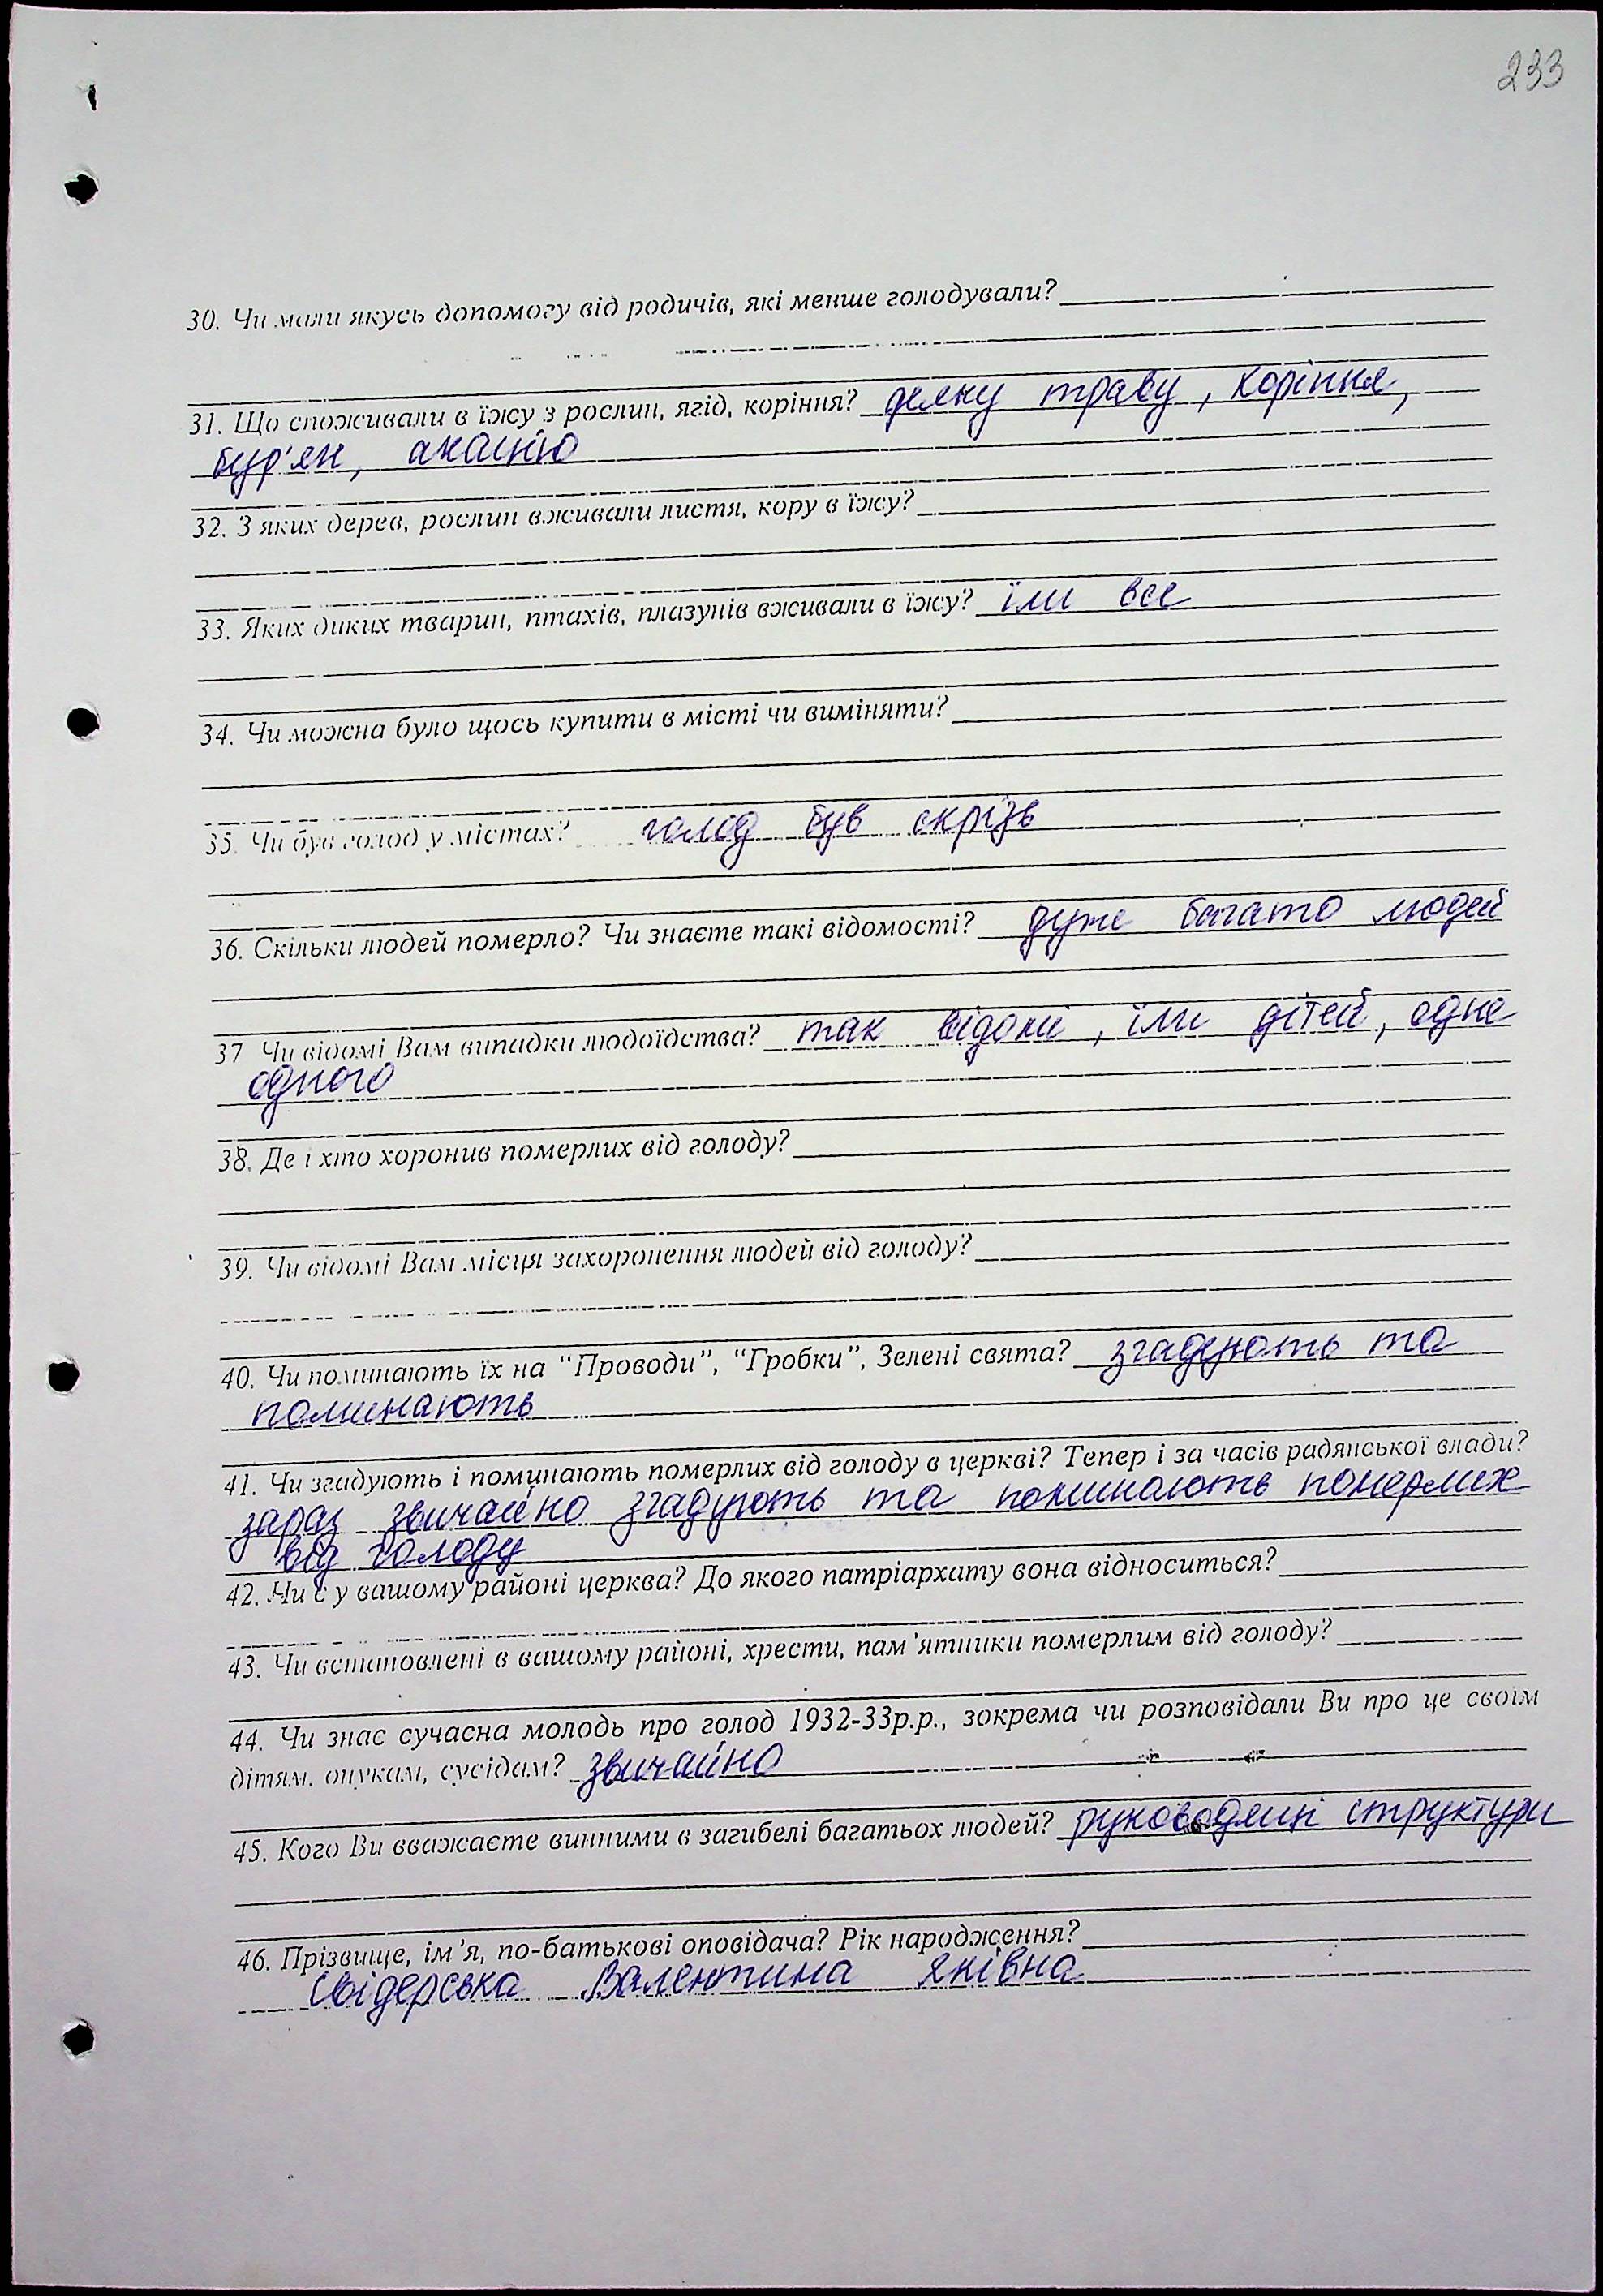 233
30. Чи мали якусь допомогу від родичів, які менше голодували?
31. Що споживали в їжу з рослин, ягід, коріння? траву, коріння,
бур'ян, акацію
32. З яких дерев, рослин вживали листя, кору в їжу?
33. Яких диких тварин, птахів, плазунів вживали в їжу? їли все
34. Чи можна було щось купити в місті чи виміняти?
35. Чи був голод у містах? голод був скрізь
36. Скільки людей померло? Чи знаєте такі відомості? дуже багато людей
37 Чи відомі Вам випадки людоїдства? так відомі, їли дітей, одне
одного
38. Де і хто хоронив померлих від голоду?
39. Чи відомі Вам місця захоронення людей від голоду?
40. Чи поминають їх на “Проводи”, “Гробки”, Зелені свята? згадують та
поминають
41. Чи згадують і поминають померлих від голоду в церкві? Тепер і за часів радянської влади?
зараз звичайно згадують та поминають померлих
від голоду
42. Чи є у вашому районі церква? До якого патріархату вона відноситься?
43. Чи встановлені в вашому районі, хрести, пам’ятники померлим від голоду?
44. Чи знає сучасна молодь про голод 1932-33р.р., зокрема чи розповідали Ви про це своїм
дітям. онукам, сусідам? звичайно
45. Кого Ви вважаєте винними в загибелі багатьох людей? руководящі структури
46. Прізвище, ім’я, по-батькові оповідача? Рік народження?
Свідерська Валентина Янівна